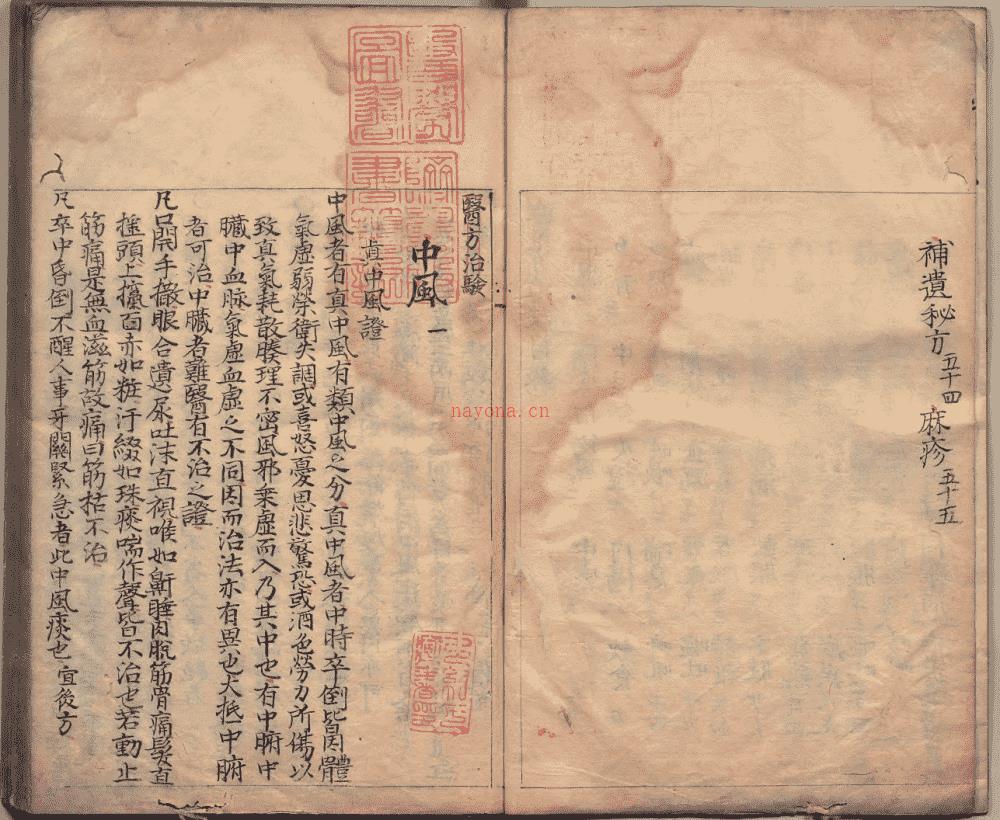 補遺秘方五十四 麻疹五十五
醫方治驗
中風一
眞中風證
中風者有真中風有類中風之分真中風者中時卒倒皆因體
氣虛弱榮衛失調或喜怒憂思悲驚恐或酒色勞力所傷以
致真氣耗散腠理不密風邪乗虛而入乃其中也有中腑中
臟中血脉氣虛血虛之不同因而治法亦有異也大抵中腑
者可治中臟者難醫有不治之證
凡口開手撒眼合遺尿吐沫直視喉如鼾睡肉脫筋骨痛髮直
搖頭上攛面赤如粧汗綴如珠痰喘作聲皆不治也若動止
筋痛是無血滋筋故痛曰筋枯不治
凡卒中昏倒不醒人事牙關緊急者此中風痰也宜後方
nayona.cn